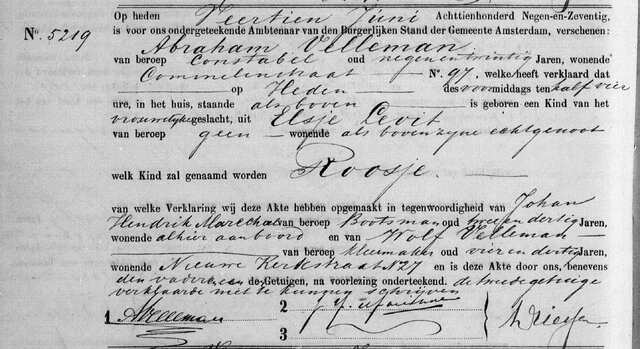 Op heden Veertien Juni Achttienhonderd Negen-en-Zeventig,
No. 5219 is voor ons ondergeteekende Ambtenaar van den Burgerlijken Stand der Gemeente Amsterdam, verschenen:
Abraham Velleman
van beroep Constabel oud negenentwintig Jaren, wonende
Commelinstraat No. 97, welke heeft verklaard dat
op Heden des voormiddags ten half vier
ure, in het huis, staande als boven is geboren een Kind van het
vrouwelijke geslacht, uit Elsje Levit
van beroep geen wonende als boven zijne echtgenoot
welk Kind zal genaamd worden Roosje
van welke Verklaring wij deze Akte hebben opgemaakt in tegenwoordigheid van Johan
Hendrik Marechal van beroep Bootsman oud twee en dertig Jaren,
wonende alhier aan boord en van Wolf Velleman
van beroep kleermaker oud vier en dertig Jaren,
wonende Nieuwe Kerkstraat N 27 en is deze Akte door ons, benevens
den vader en de Getuigen, na voorlezing onderteekend. de tweede getuige
verklaarde niet te kunnen schrijven
1 AVelleman 2
3